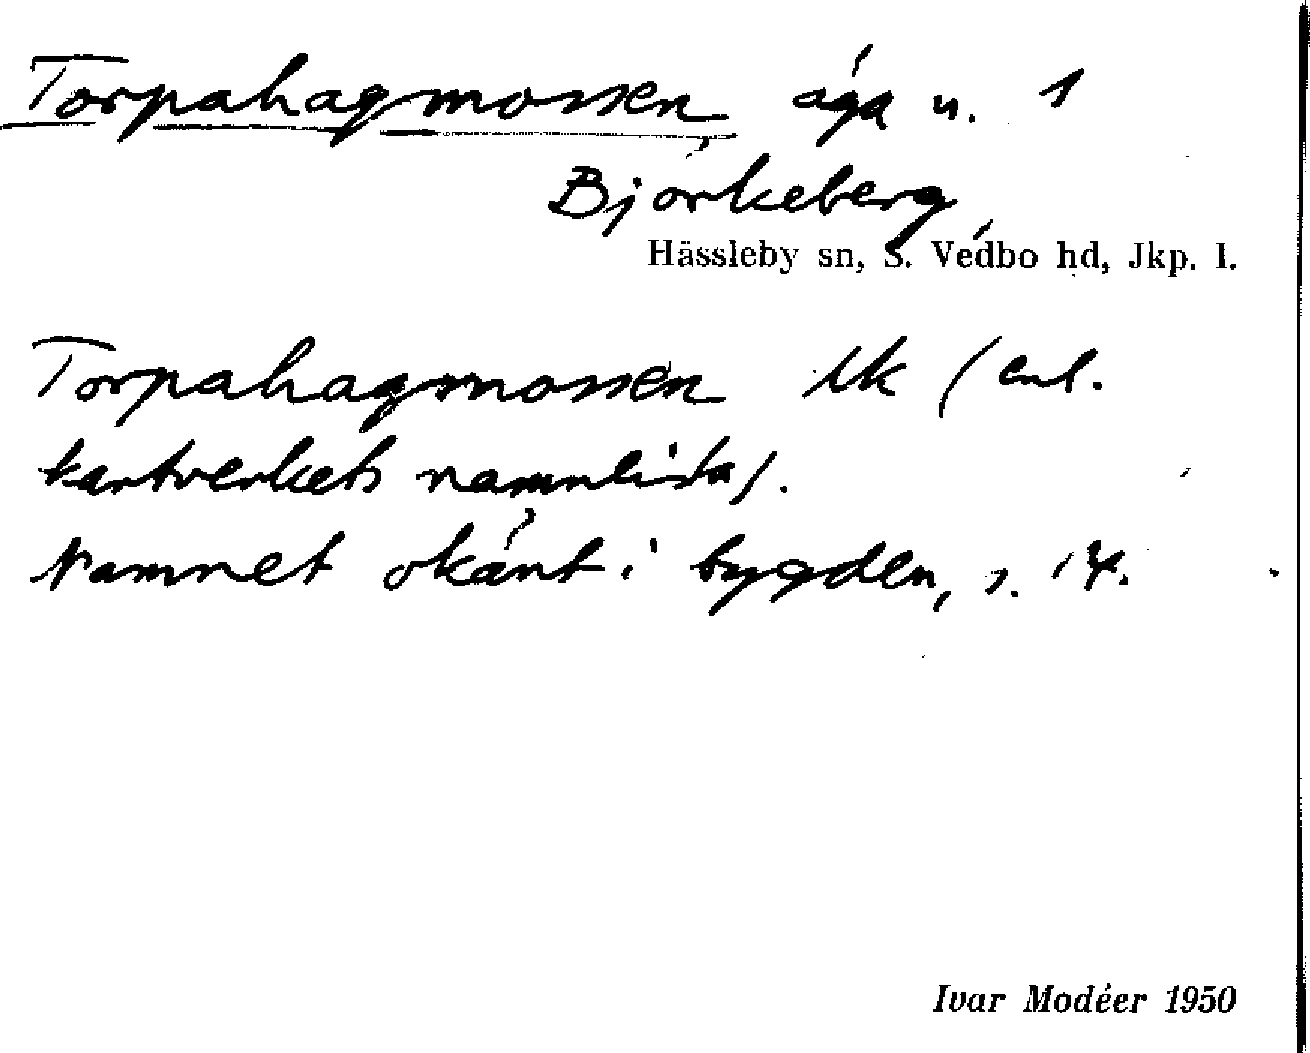 Torpahagmossen äga u. 1
Björkeberg
Hässleby sn, S. Vedbo hd, Jkp. l.
Torpahagmossen Uk (enl.
kartverkets namnlista).
Namnet okänt i bygden, s. 14.
Ivar Modéer 1950